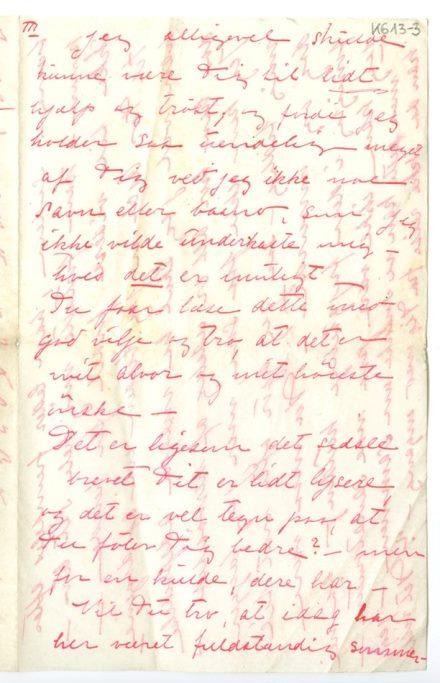 III
N613-3
jeg alligevel skulde
kunne være Dig til lidt
hjælp og trøst, og fordi jeg
holder saa uendelig meget
af Dig ved jeg ikke noe
Savn eller baand, som jeg
ikke vilde underkaste mig –
hvad det er muligt –
Du faar læse dette med
god vilje og tro, at det er
mit alvor og mit høieste
ønske –
Det er ligesom det sidste
brevet Dit er lidt lysere
og det er vel tegn paa, at
Du føler Dig bedre? – men
for en kulde, dere har –
Vil Du tro, at idag har
her været fuldstændig sommer-